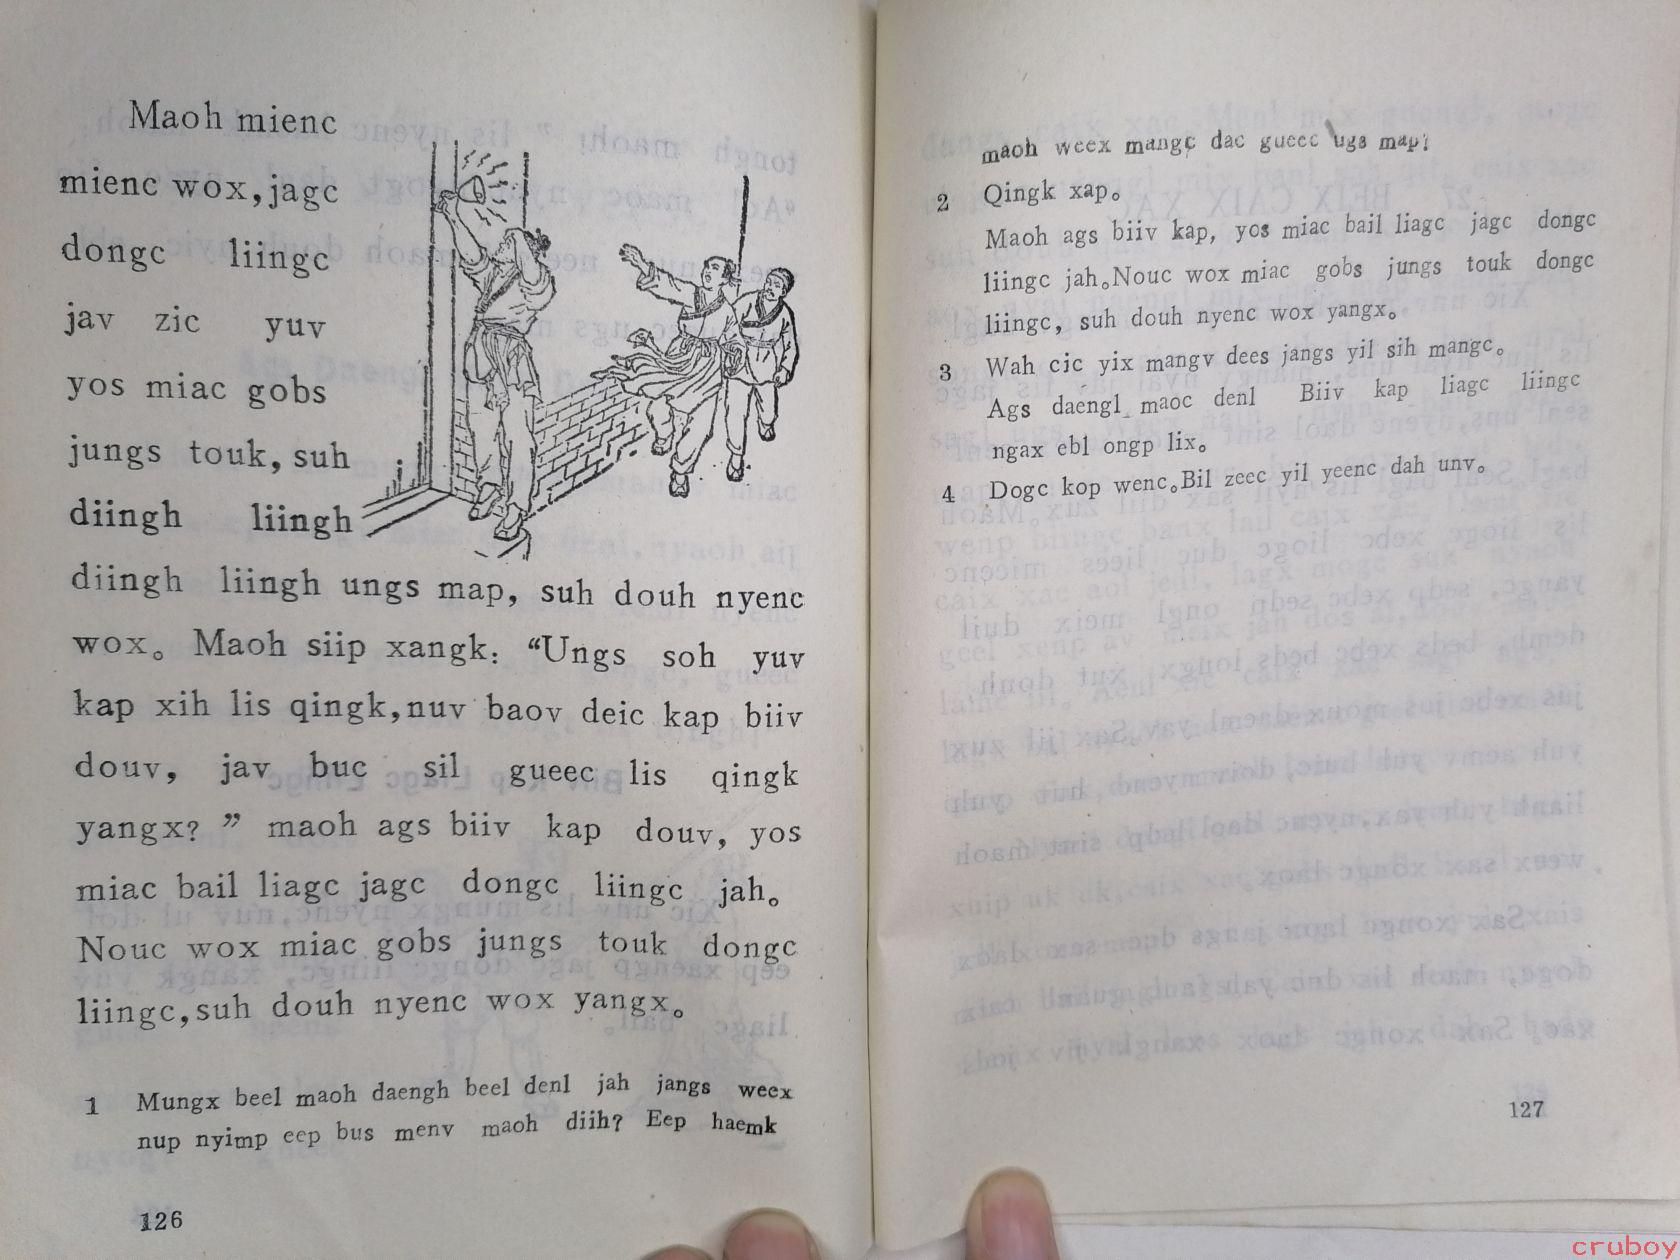 Maoh mienc
mienc wox, jagc
dongc liingc
jav zic yuv
yos miac gobs
jungs touk, suh
diingh liingh
diingh liingh ungs map, suh douh nyenc
wox。 Maoh siip xangk: “Ungs soh yuv
kap xih lis qingk, nuv baov deic kap biiv
douv, jav buc sil gueec lis qingk
yangx? ” maoh ags biiv kap douv, yos
miac bail liagc jagc dongc liingc jah。
Nouc wox miac gobs jungs touk dongc
liingc, suh douh nyenc wox yangx。
1 Mungx beel maoh daengh beel denl jah jangs weex
nup nyimp eep bus menv maoh diih? Eep haemk
126
maoh weex mangc dac gueec ugs map?
2 Qingk xap。
Maoh ags biiv kap, yos miac bail liagc jagc dongc
liingc jah。Nouc wox miac gobs jungs touk dongc
liingc, suh douh nyenc wox yangx。
3 Wah cic yix mangv dees jangs yil sih mangc。
Ags daengl maoc denl Biiv kap liagc liingc
ngax ebl ongp lix。
4 Dogc kop wenc。Bil zeec yil yeenc dah unv。
127
cruboy